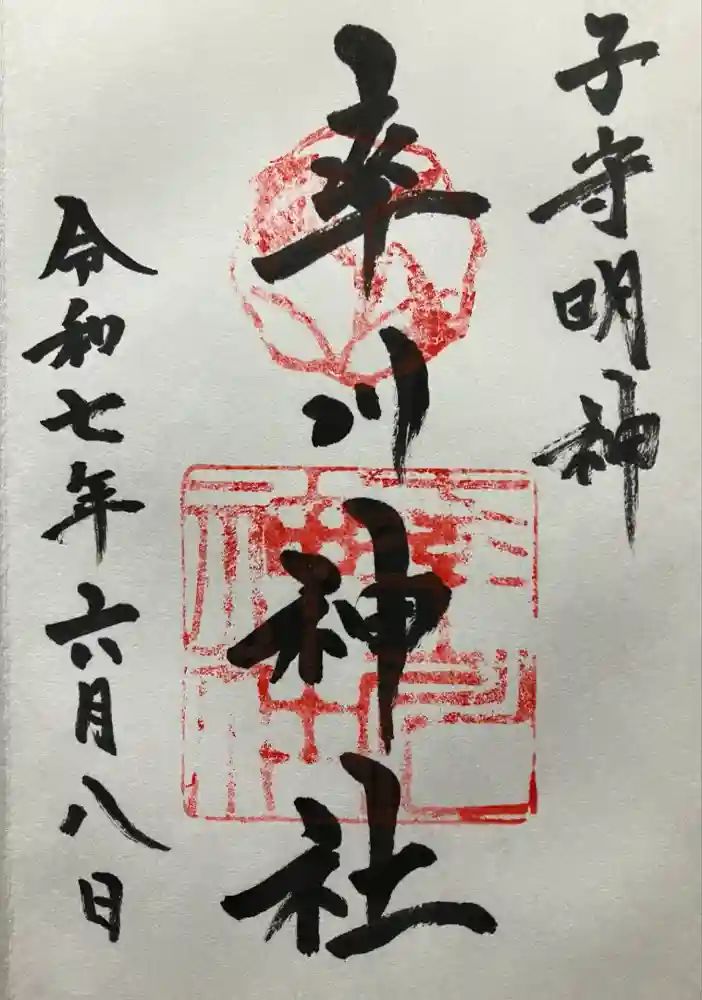 子守明神
率川神社
令和七年六月八日